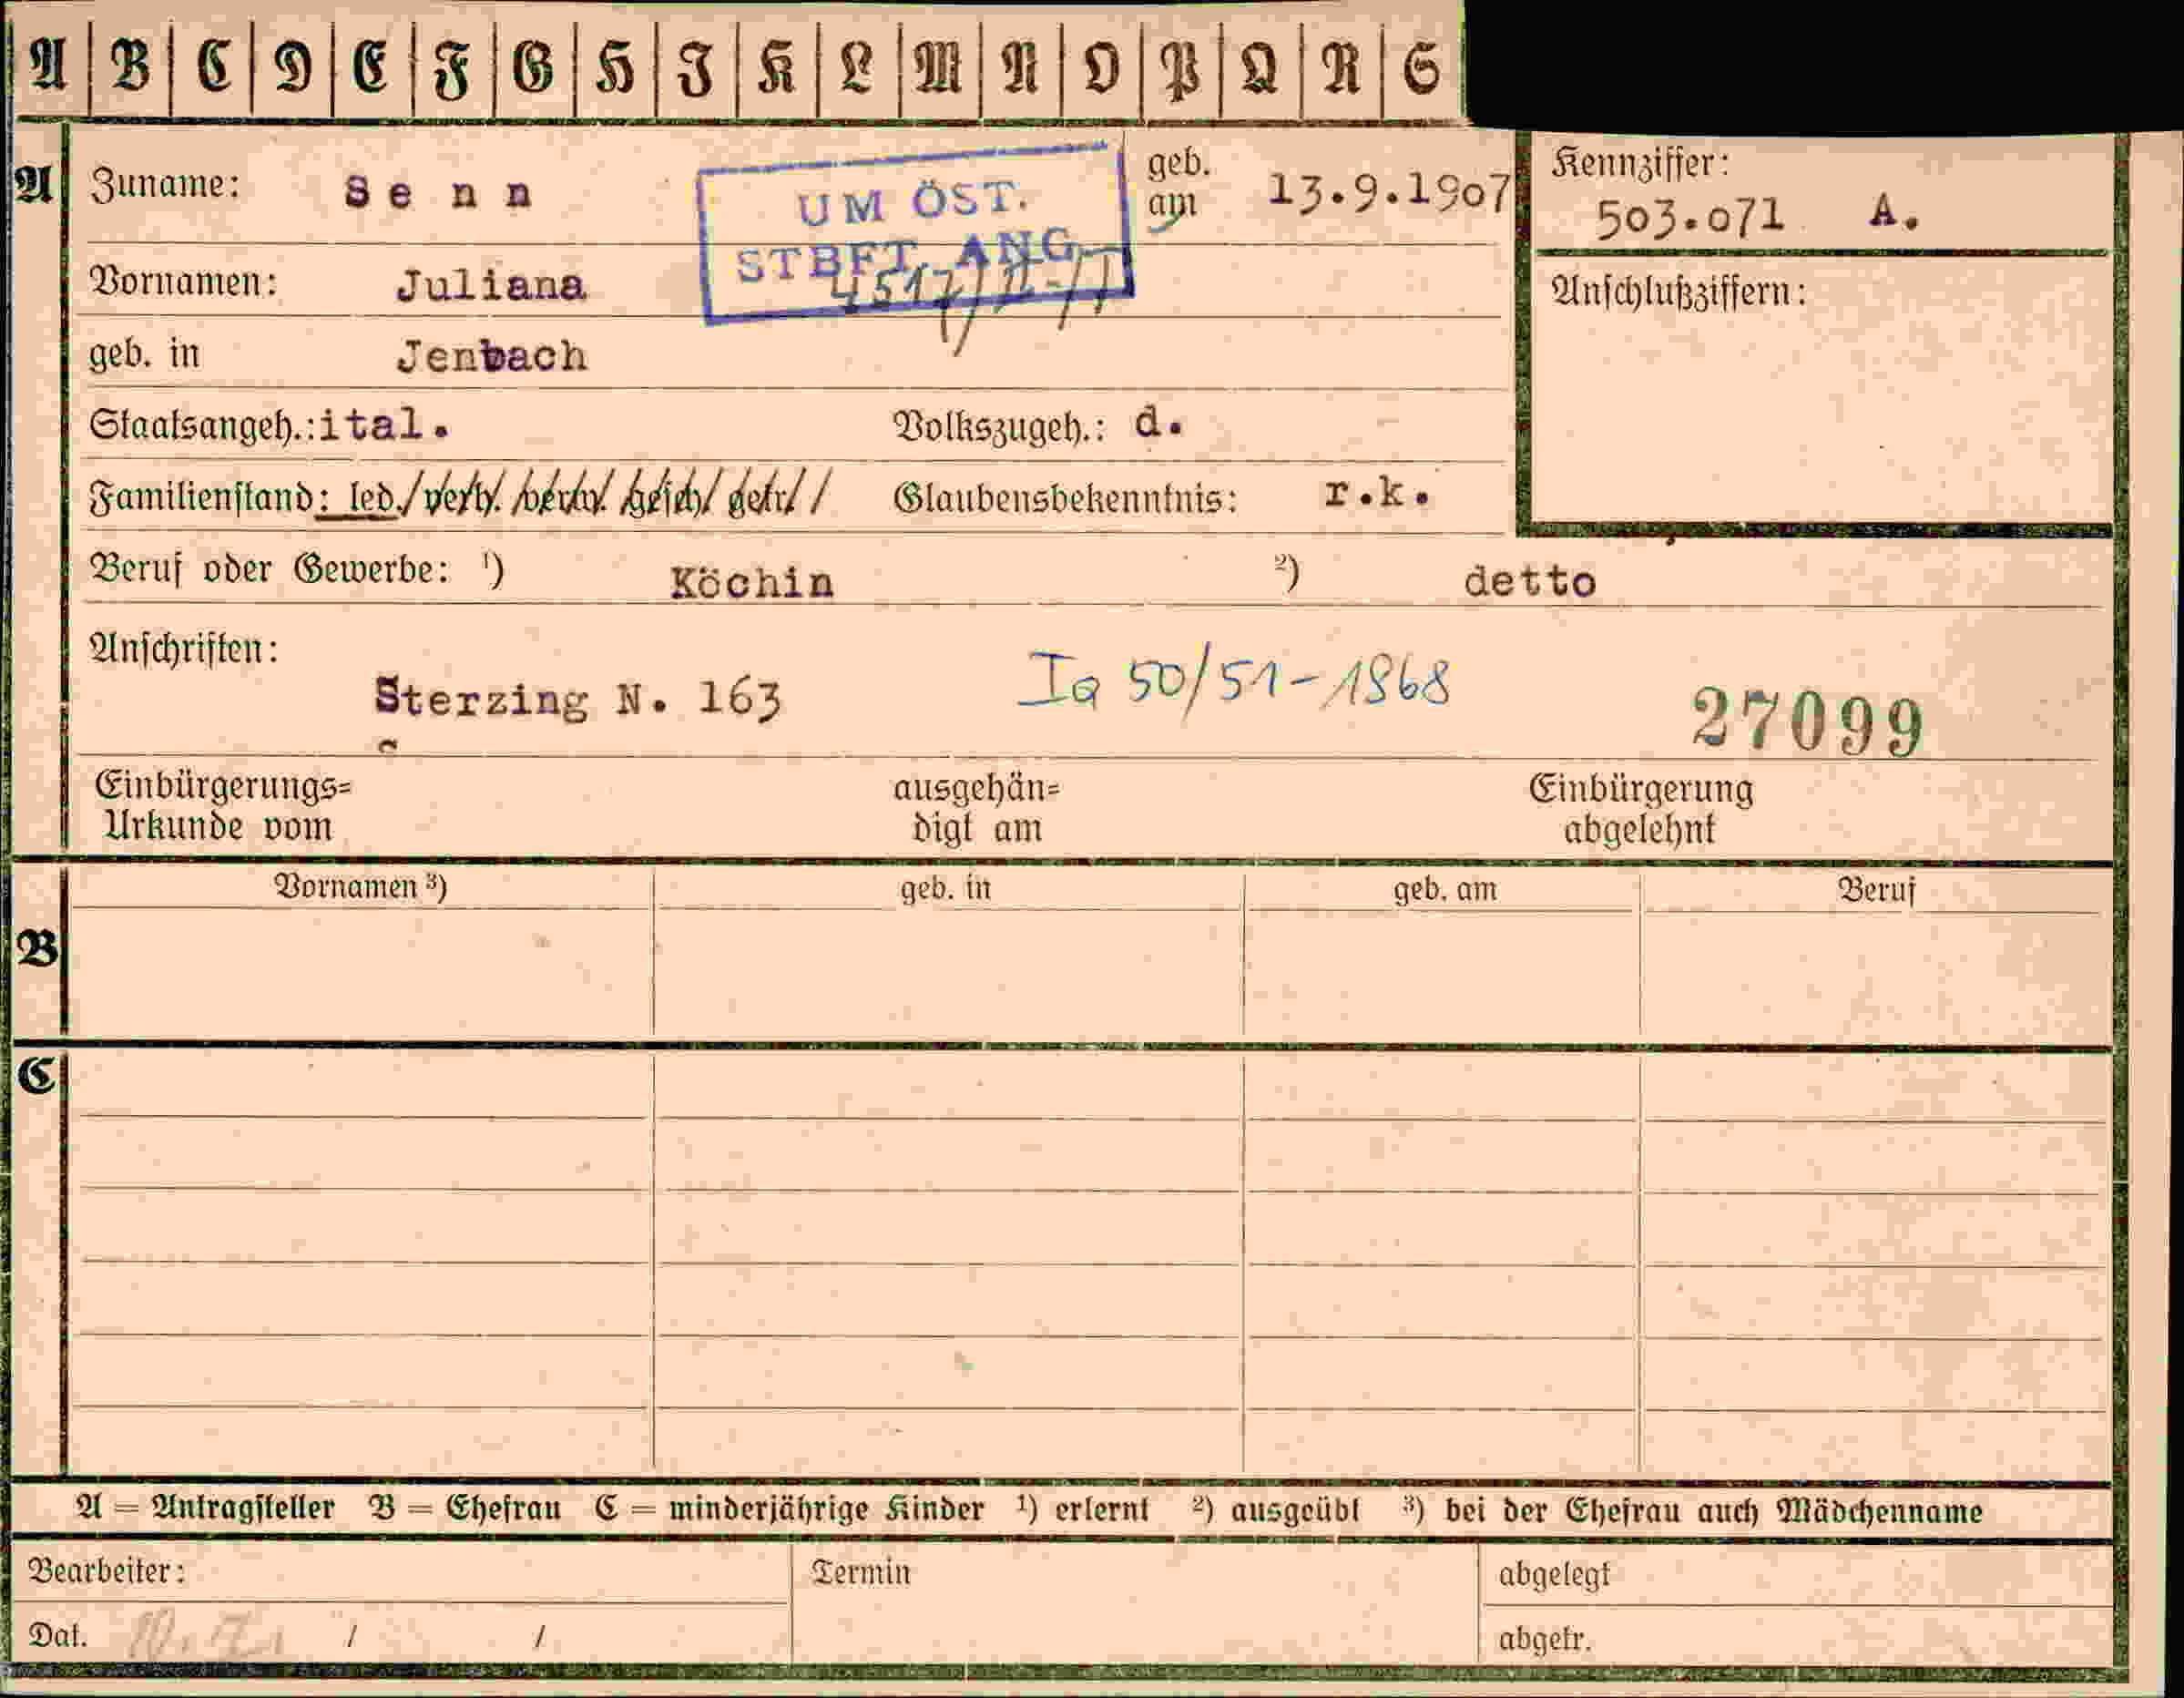 A B C D E F G H I K L M N O P Q R S
A Zuname: Senn geb. am 13.9.1907 Kennziffer: 503.071 A.
UM ÖST.
STBFT. ANG.
Vornamen: Juliana Anschlußziffern:
geb. in Jenbach
Staatsangeh.: ital. Volkszugeh.: d.
Familienstand: led./verh./verw./gesch./getr./ Glaubensbekenntnis: r.k.
Beruf oder Gewerbe: ¹) Köchin ²) detto
Anschriften:
Sterzing N. 163 Ia 50/51-1868 27099
Einbürgerungs= ausgehän= Einbürgerung
Urkunde vom digt am abgelehnt
Vornamen ³) geb. in geb. am Beruf
B
C
A = Antragsteller B = Ehefrau C = minderjährige Kinder ¹) erlernt ²) ausgeübt ³) bei der Ehefrau auch Mädchenname
Bearbeiter: Termin abgelegt
Dat. / / abgetr.